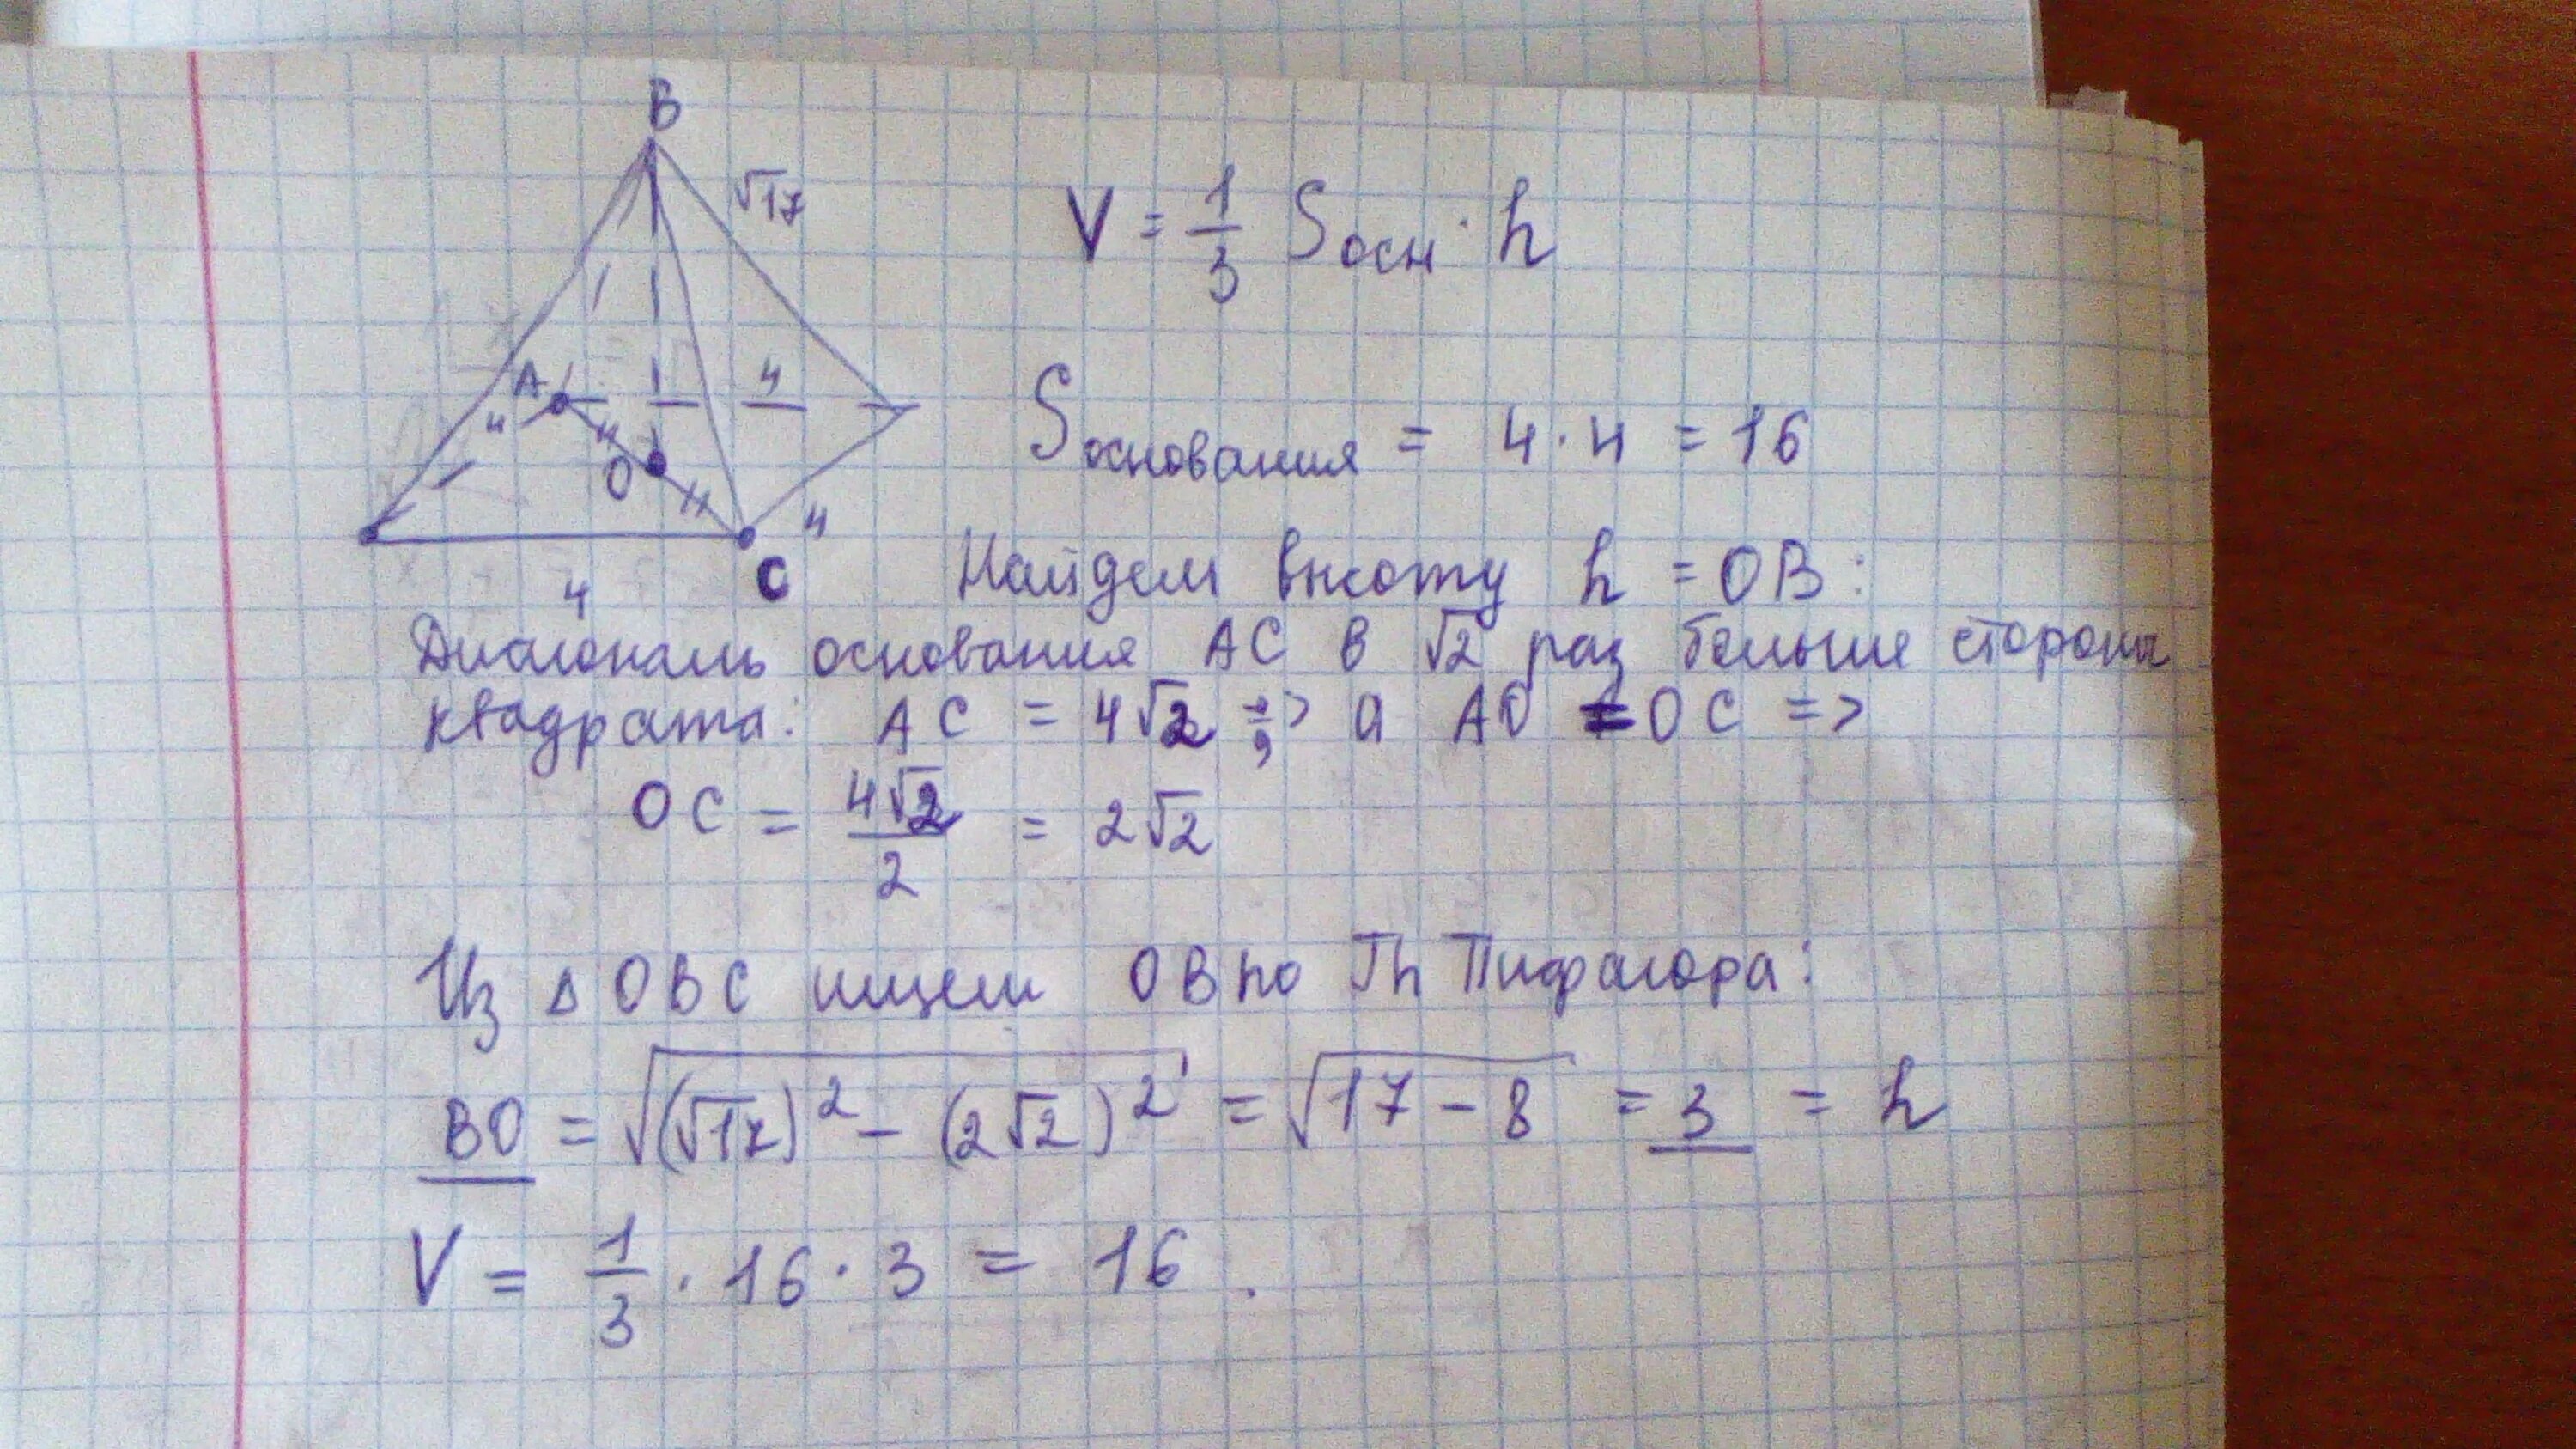 B
√17
A
4
4
O
4
4
C
V = 1/3 Sосн · h
Sоснования = 4 · 4 = 16
Найдем высоту h = OB:
Диагональ основания AC в √2 раз больше стороны
квадрата: AC = 4√2 ; а AO = OC =>
OC = 4√2/2 = 2√2
Из Δ OBC ищем OB по Th Пифагора:
BO = √((√17)² − (2√2)²) = √(17 − 8) = 3 = h
V = 1/3 · 16 · 3 = 16 .